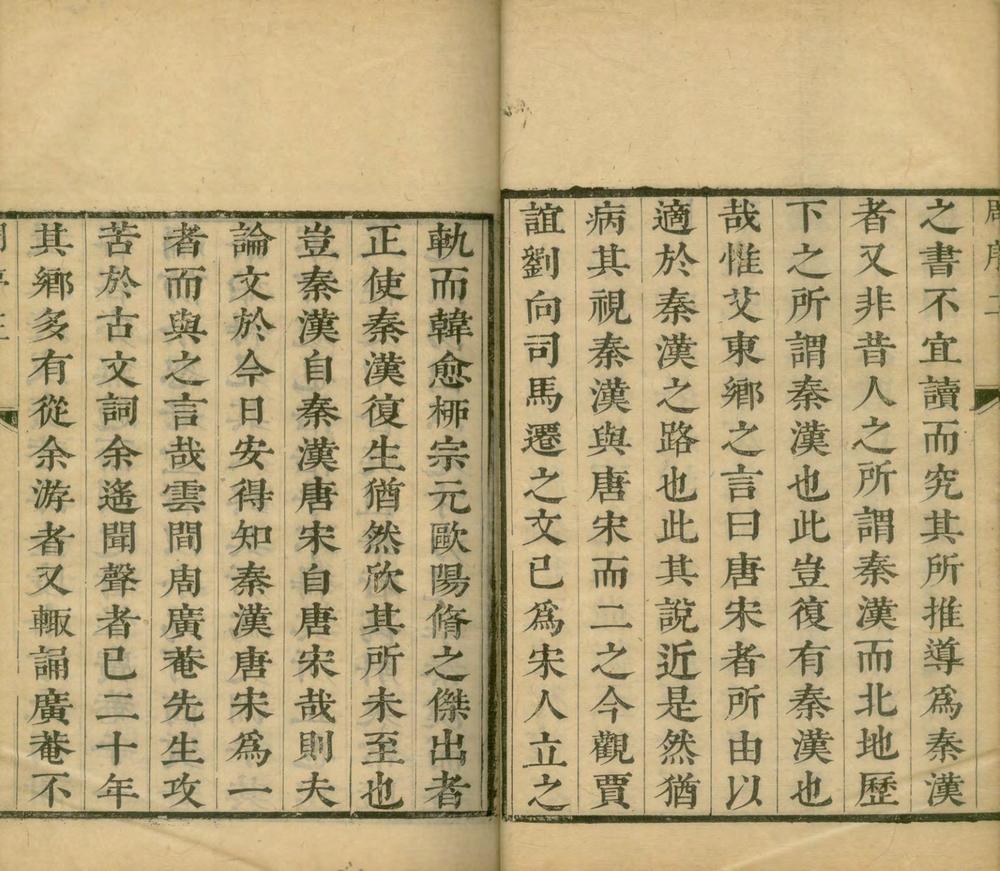 之書不宜讀而究其所推導為秦漢
者又非昔人之所謂秦漢而北地歷
下之所謂秦漢也此豈復有秦漢也
哉惟艾東鄉之言曰唐宋者所由以
適於秦漢之路也此其說近是然猶
病其視秦漢與唐宋而二之今觀賈
誼劉向司馬遷之文已為宋人立之
軌而韓愈桺宗元歐陽脩之傑出者
正使秦漢復生猶然欣其所未至也
豈秦漢自秦漢唐宋自唐宋哉則夫
論文於今日安得知秦漢唐宋為一
者而與之言哉雲間周廣菴先生攻
苦於古文詞余遙聞聲者已二十年
其鄉多有從余游者又輙誦廣菴不